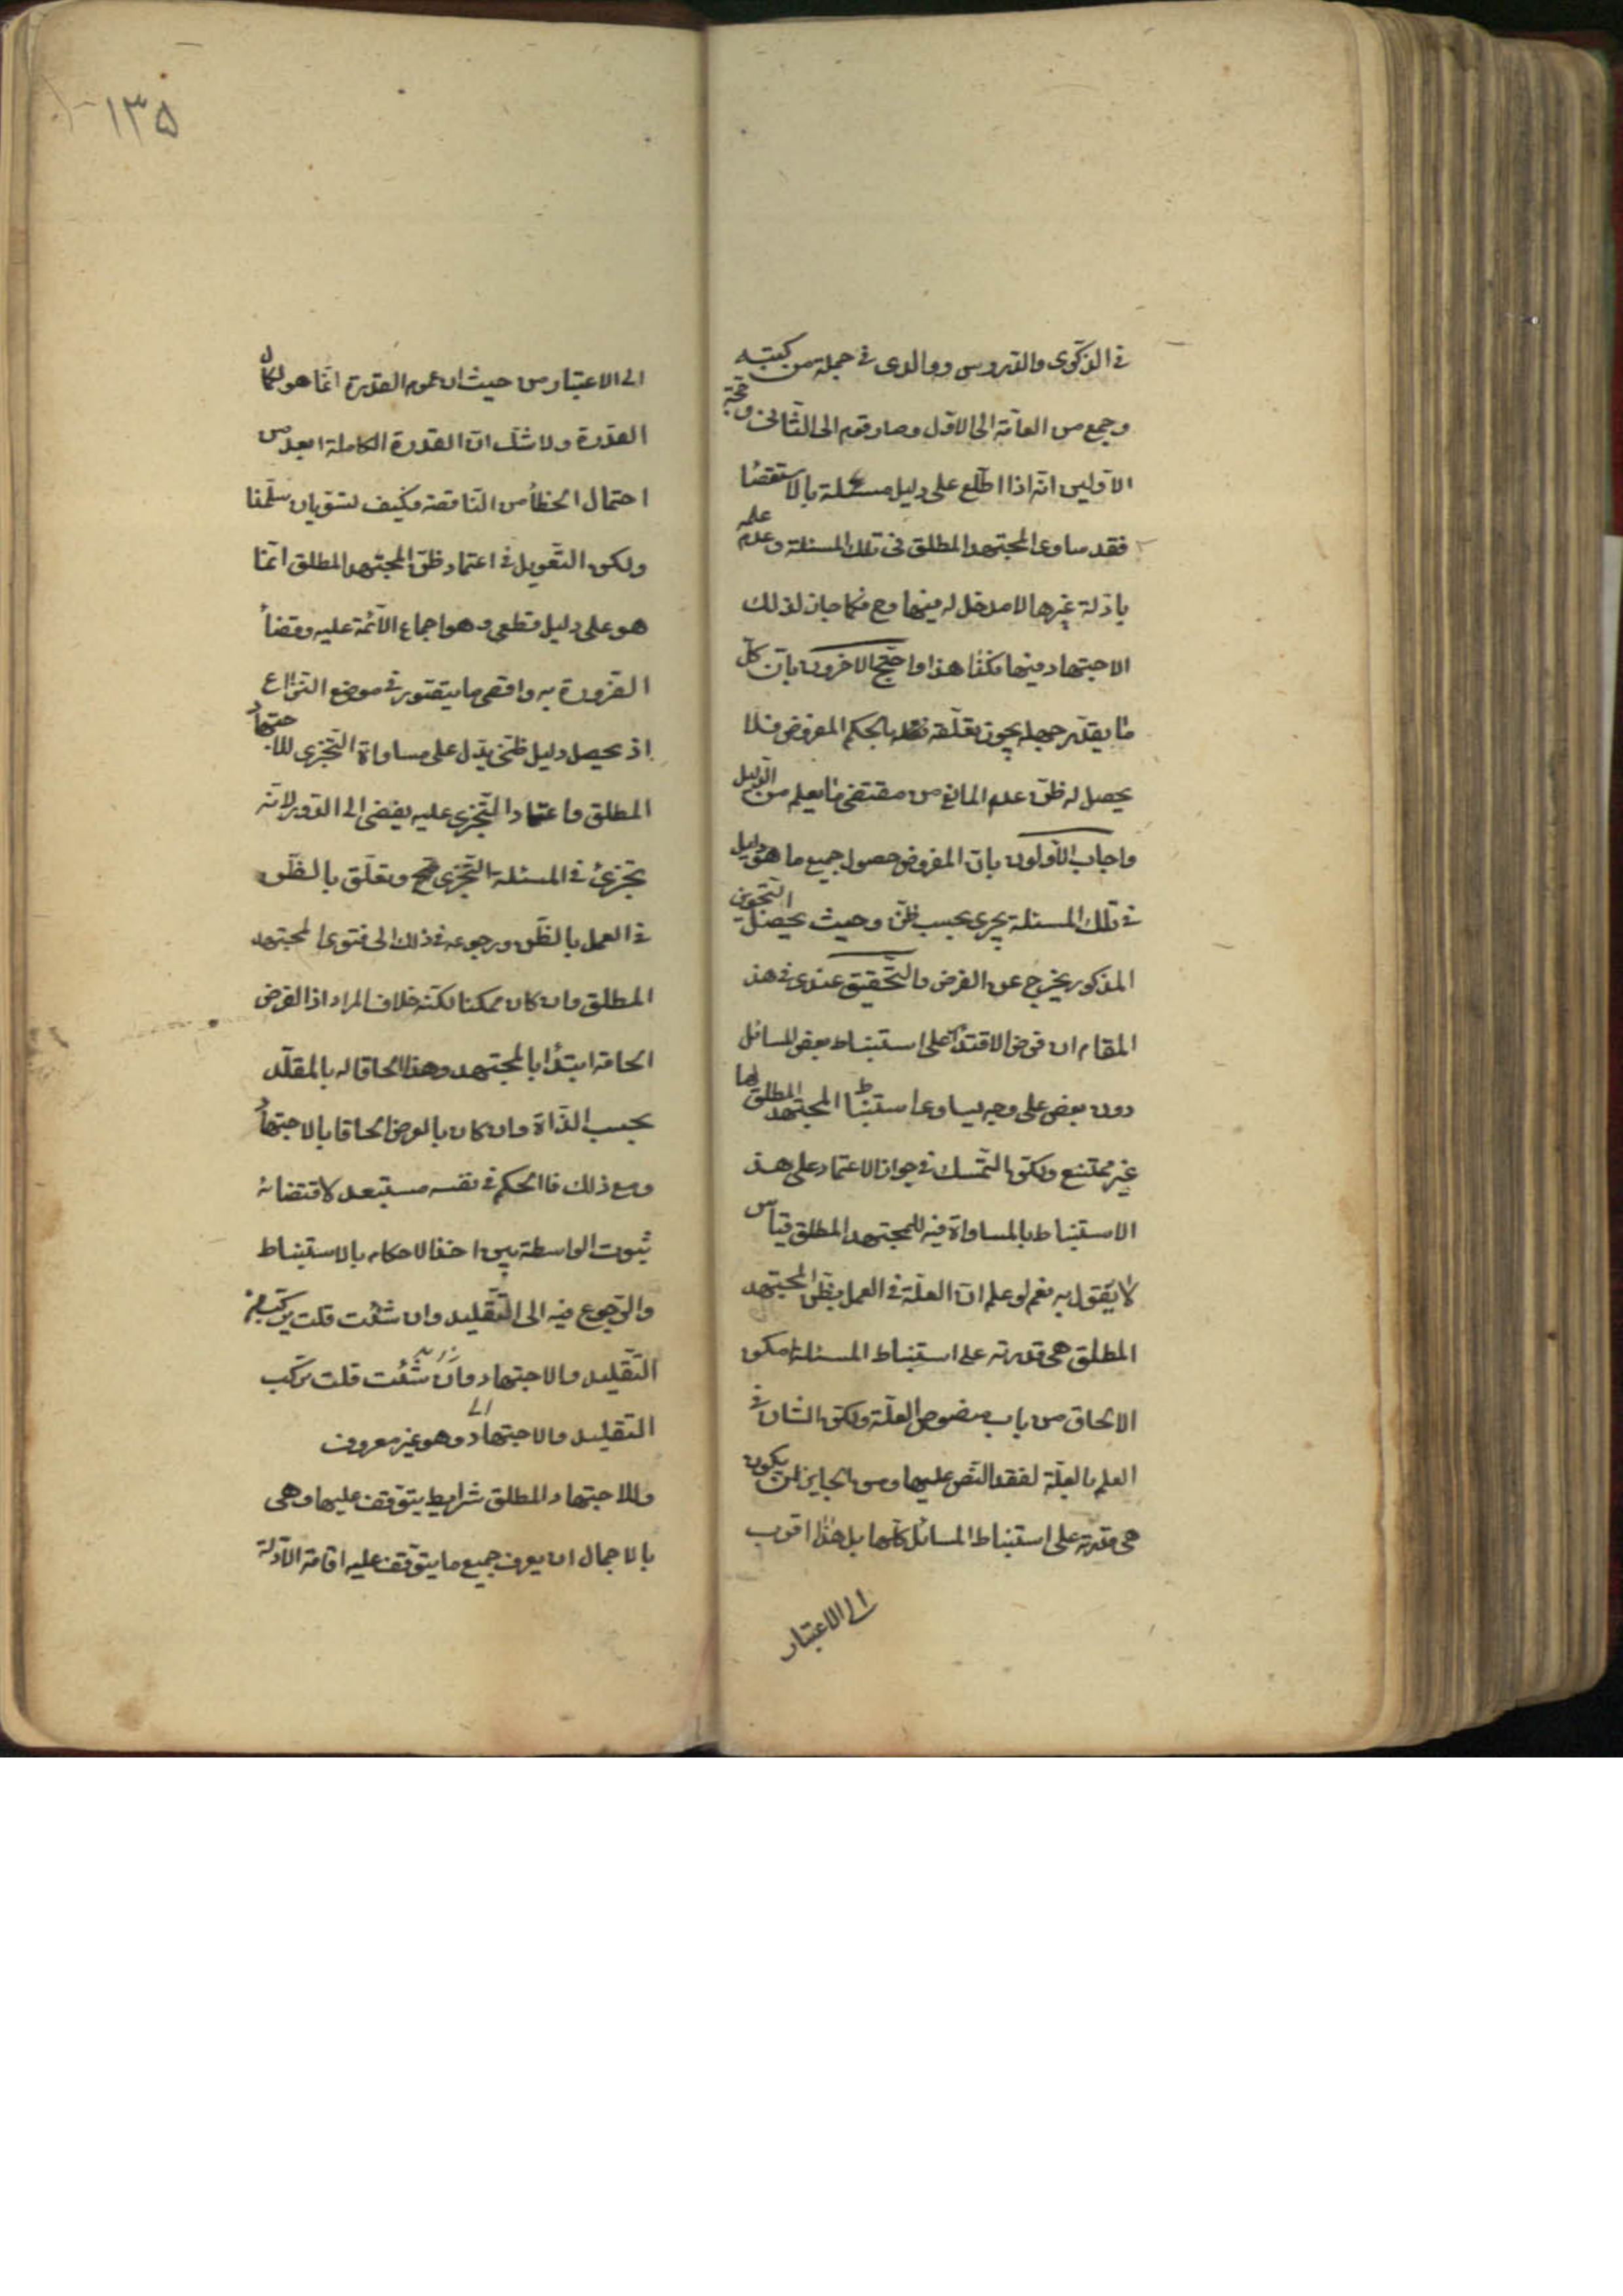 في الذكرى والدروس ووالدى في جملة من كتبه
وجمع من العامة الى الاول وصار قوم الى الثانى وحجة
الاولين انه اذا اطلع على دليل مسئلة بالاستقصا
فقد ساوى المجتهد المطلق فى تلك المسئلة وعدم علمه
بادلة غيرها لا مدخل له فيها وح فكما جاز لذلك
الاجتهاد فيها فكذا هذا واحتج الاخرون بان كل
ما يقدر جهله يجوز تعلقه بالحكم المفروض فلا
يحصل له ظن عدم المانع من مقتضى ما يعلم من الدليل
واجاب الاولون بان المفروض حصول جميع ما هو دليل
في تلك المسئلة بحسب ظنه وحيث يحصل التجويز
المذكور يخرج عن الفرض والتحقيق عندى في هذ
المقام ان فرض الاقتدار على استنباط بعض المسائل
دون بعض على وجه يساوى استنباط المجتهد المطلق لها
غير ممتنع ولكن التمسك في جواز الاعتماد على هذ
الاستنباط بالمساواة فيه للمجتهد المطلق قياس
لا يقول به نعم لو علم ان العلة في العمل بظن المجتهد
المطلق هى قدرته على استنباط المسئلة امكن
الالحاق من باب منصوص العلة ولكن الشان في
العلم بالعلة لفقد النص عليها ومن الجايز ان يكون
هى قدرته على استنباط المسائل كلها بل هذا اقرب
الى الاعتبار
١٣٥
الى الاعتبار من حيث ان عموم القدرة انما هو لكمال
القدرة ولا شك ان القدرة الكاملة ابعد من
احتمال الخطأ من الناقصة فكيف يستويان سلمنا
ولكن التعويل في اعتماد ظن المجتهد المطلق انما
هو على دليل قطعى وهو اجماع الائمة عليه وقضاء
الضرورة به واقصى ما يتصور في موضع النزاع
ان يحصل دليل ظنى يدل على مساواة التجزى للاجتهاد
المطلق واعتماد التجزى عليه يفضى الى الدور لانه
تجزئ في المسئلة التجزى وتعلق بالظن
في العمل بالظن ورجوعه في ذلك الى فتوى المجتهد
المطلق وان كان ممكنا لكنه خلاف المراد اذ الفرض
الحاقه ابتداء بالمجتهد وهذا الحاقا له بالمقلد
بحسب الذاة وان كان بالعرض الحاقا بالاجتهاد
ومع ذلك فالحكم في نفسه مستبعد لاقتضائه
ثبوت الواسطة بين اخذ الاحكام بالاستنباط
والرجوع فيه الى التقليد وان شئت قلت تركب
التقليد والاجتهاد وان شئت قلت تركب
التقليد والاجتهاد وهو غير معروف
وللاجتهاد المطلق شرايط يتوقف عليها وهى
بالاجمال ان يعرف جميع ما يتوقف عليه اقامة الادلة